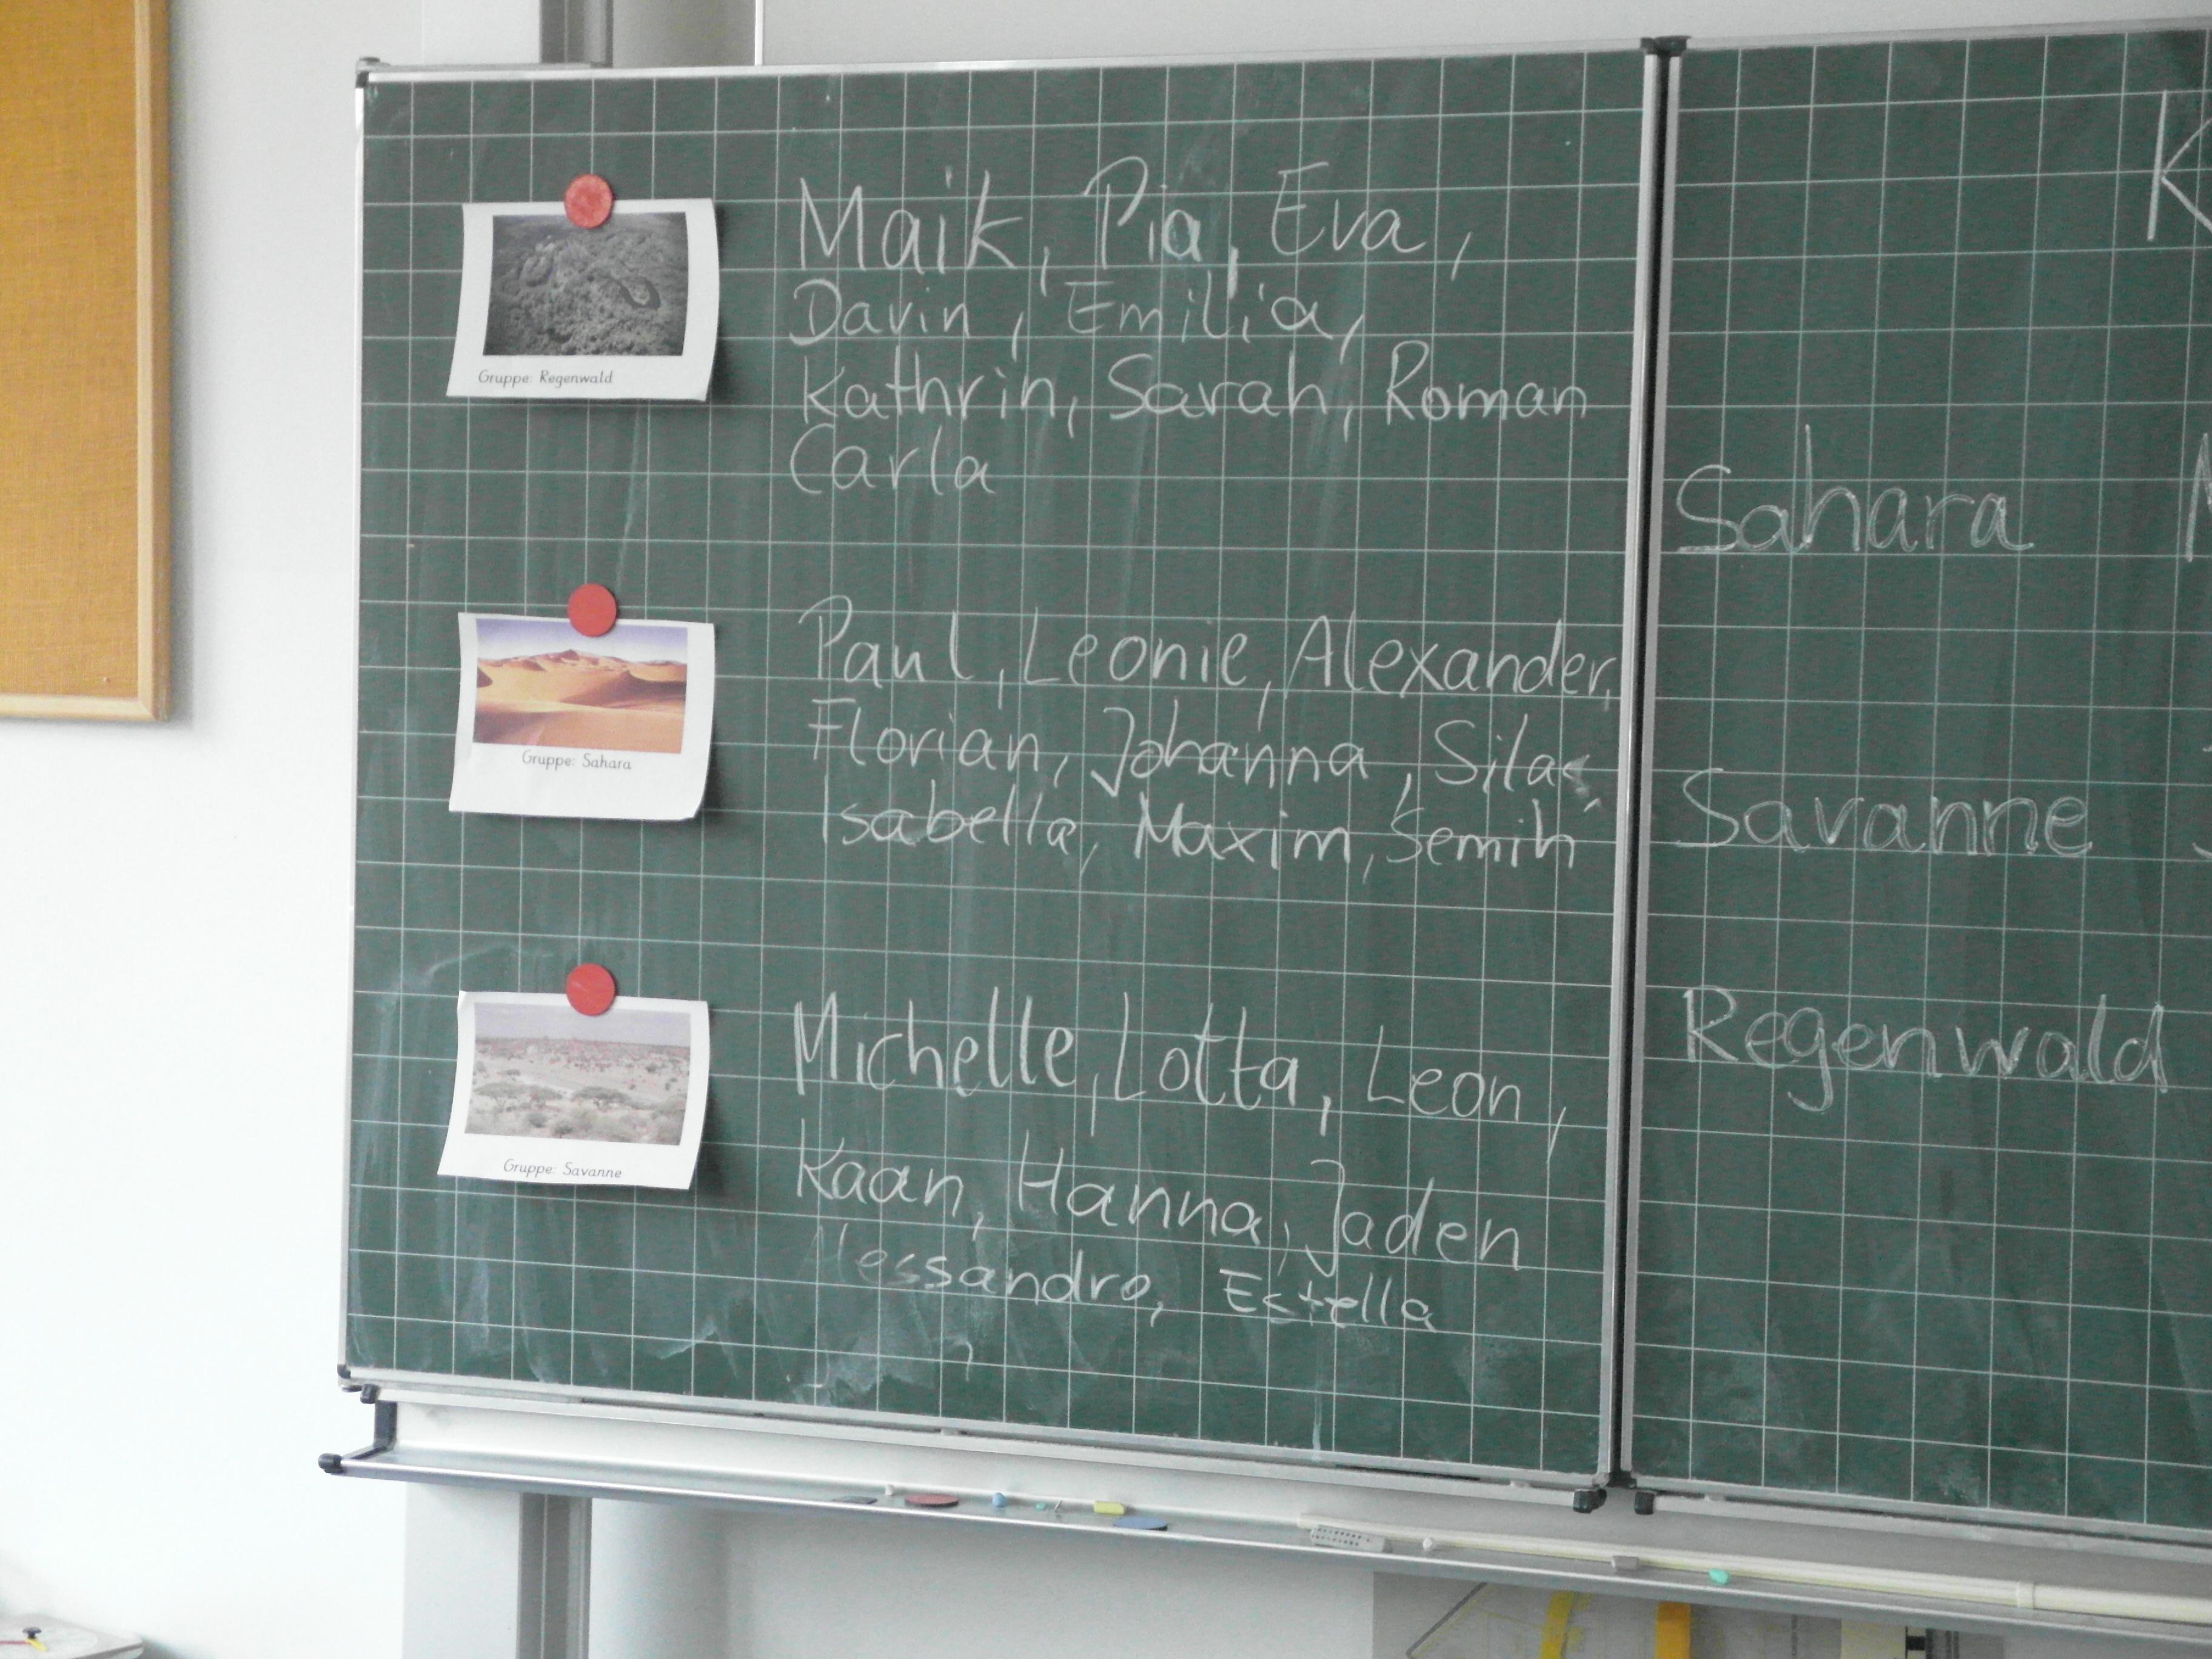 Maik, Pia, Eva,
Davin, Emilia,
Kathrin, Sarah, Roman
Carla
Gruppe: Regenwald
Paul, Leonie, Alexander,
Florian, Johanna, Silas,
Isabella, Maxim, Semih
Gruppe: Sahara
Michelle, Lotta, Leon,
Kaan, Hanna, Jaden
lessandro, Estella
Gruppe: Savanne
K
Sahara
Savanne
Regenwald